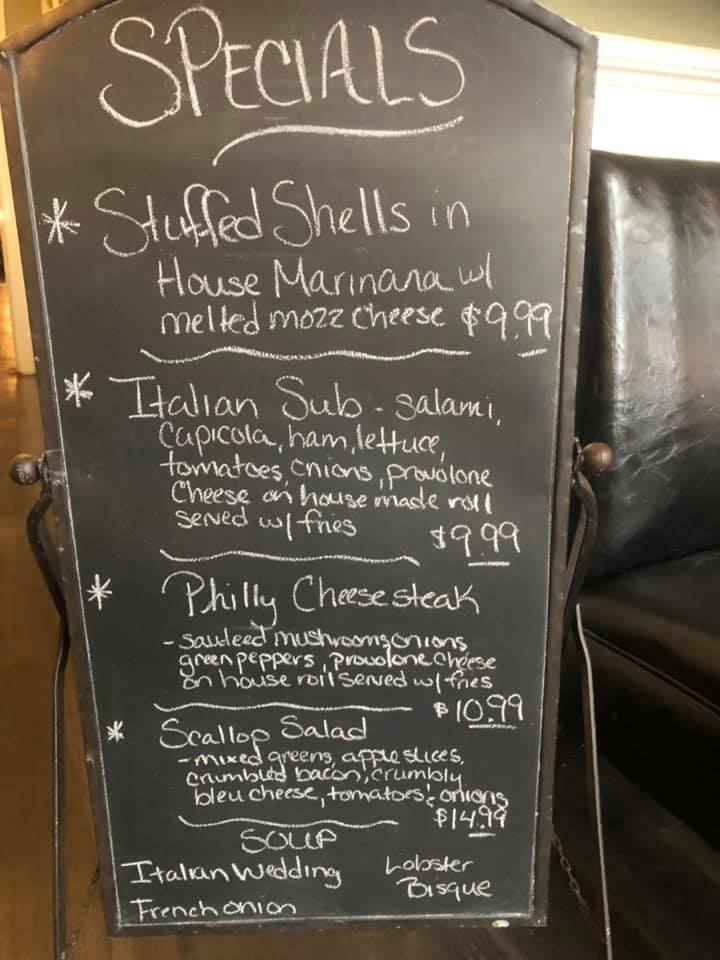 SPECIALS
* Stuffed Shells in
House Marinara w/
melted mozz cheese $9.99
* Italian Sub - salami,
Capicola, ham, lettuce,
tomatoes, onions, provolone
Cheese on house made roll
served w/ fries
$9.99
* Philly Cheese steak
- sauteed mushrooms, onions,
green peppers, provolone cheese
on house roll served w/ fries
$10.99
* Scallop Salad
- mixed greens, apple slices,
crumbled bacon, crumbly
bleu cheese, tomatoes & onions
$14.99
SOUP
Italian Wedding
Lobster
Bisque
French onion